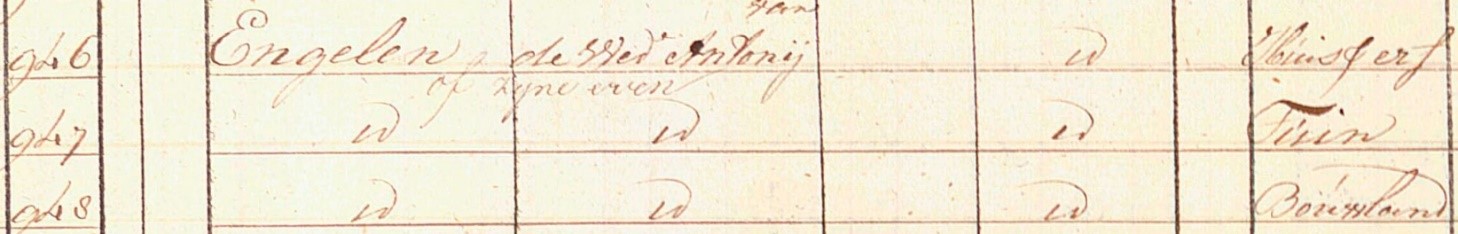 van
946 Engelen de Wed Antonij id Huis & erf
of zyne erven
947 id id id Tuin
948 id id id Bouwland